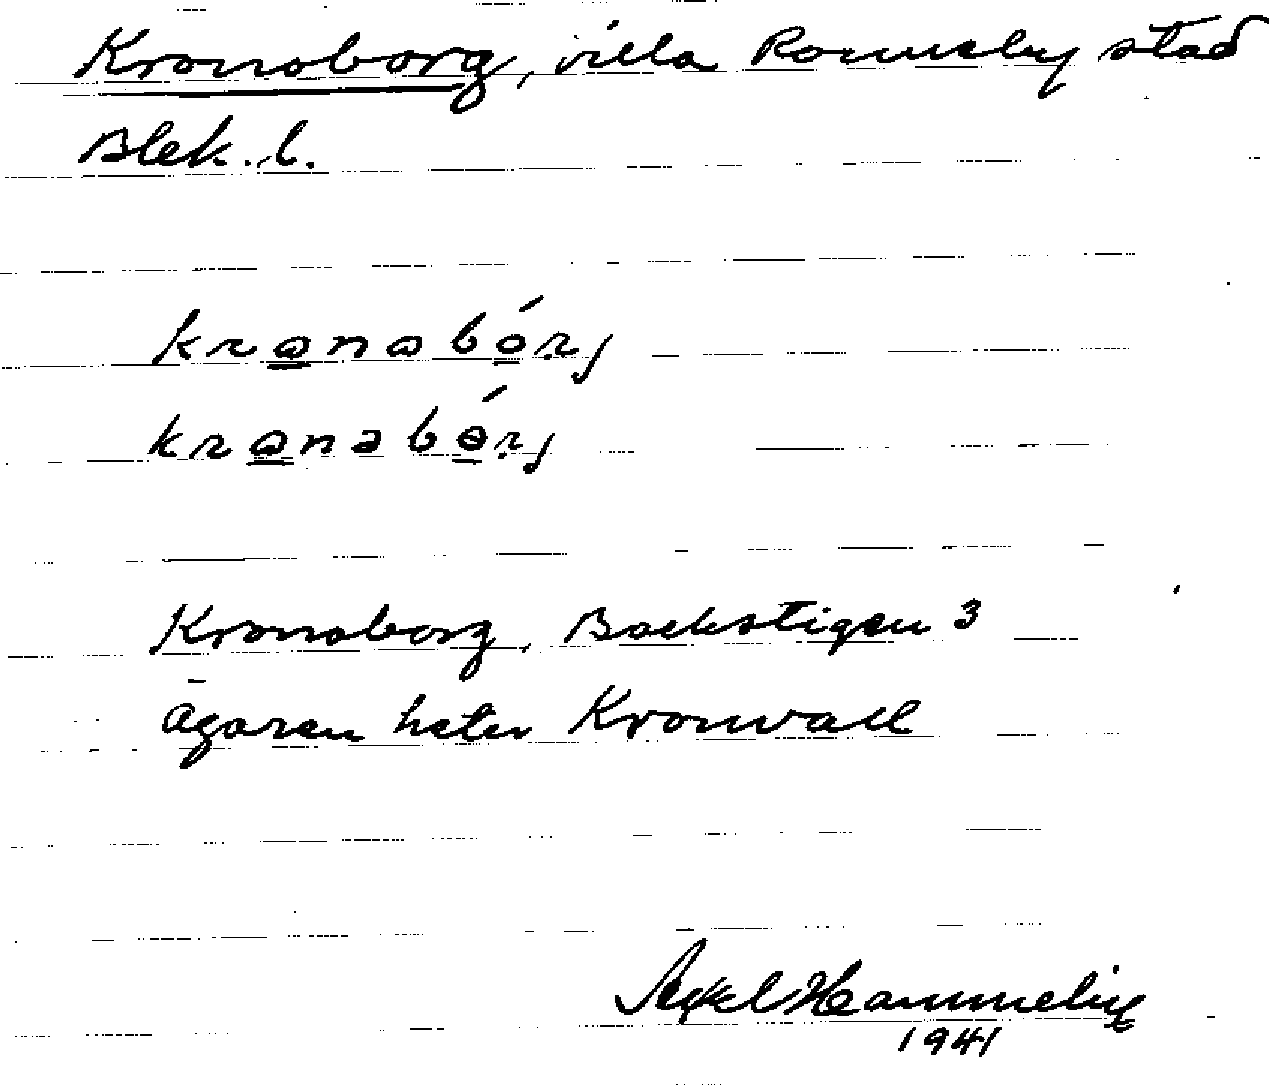 Kronoborg, villa Ronneby stad
Blek. l.
kronobórj
kronəbórj
Kronoborg, Backstigen 3
ägaren heter Kronvall
Axel Hammelin
1941